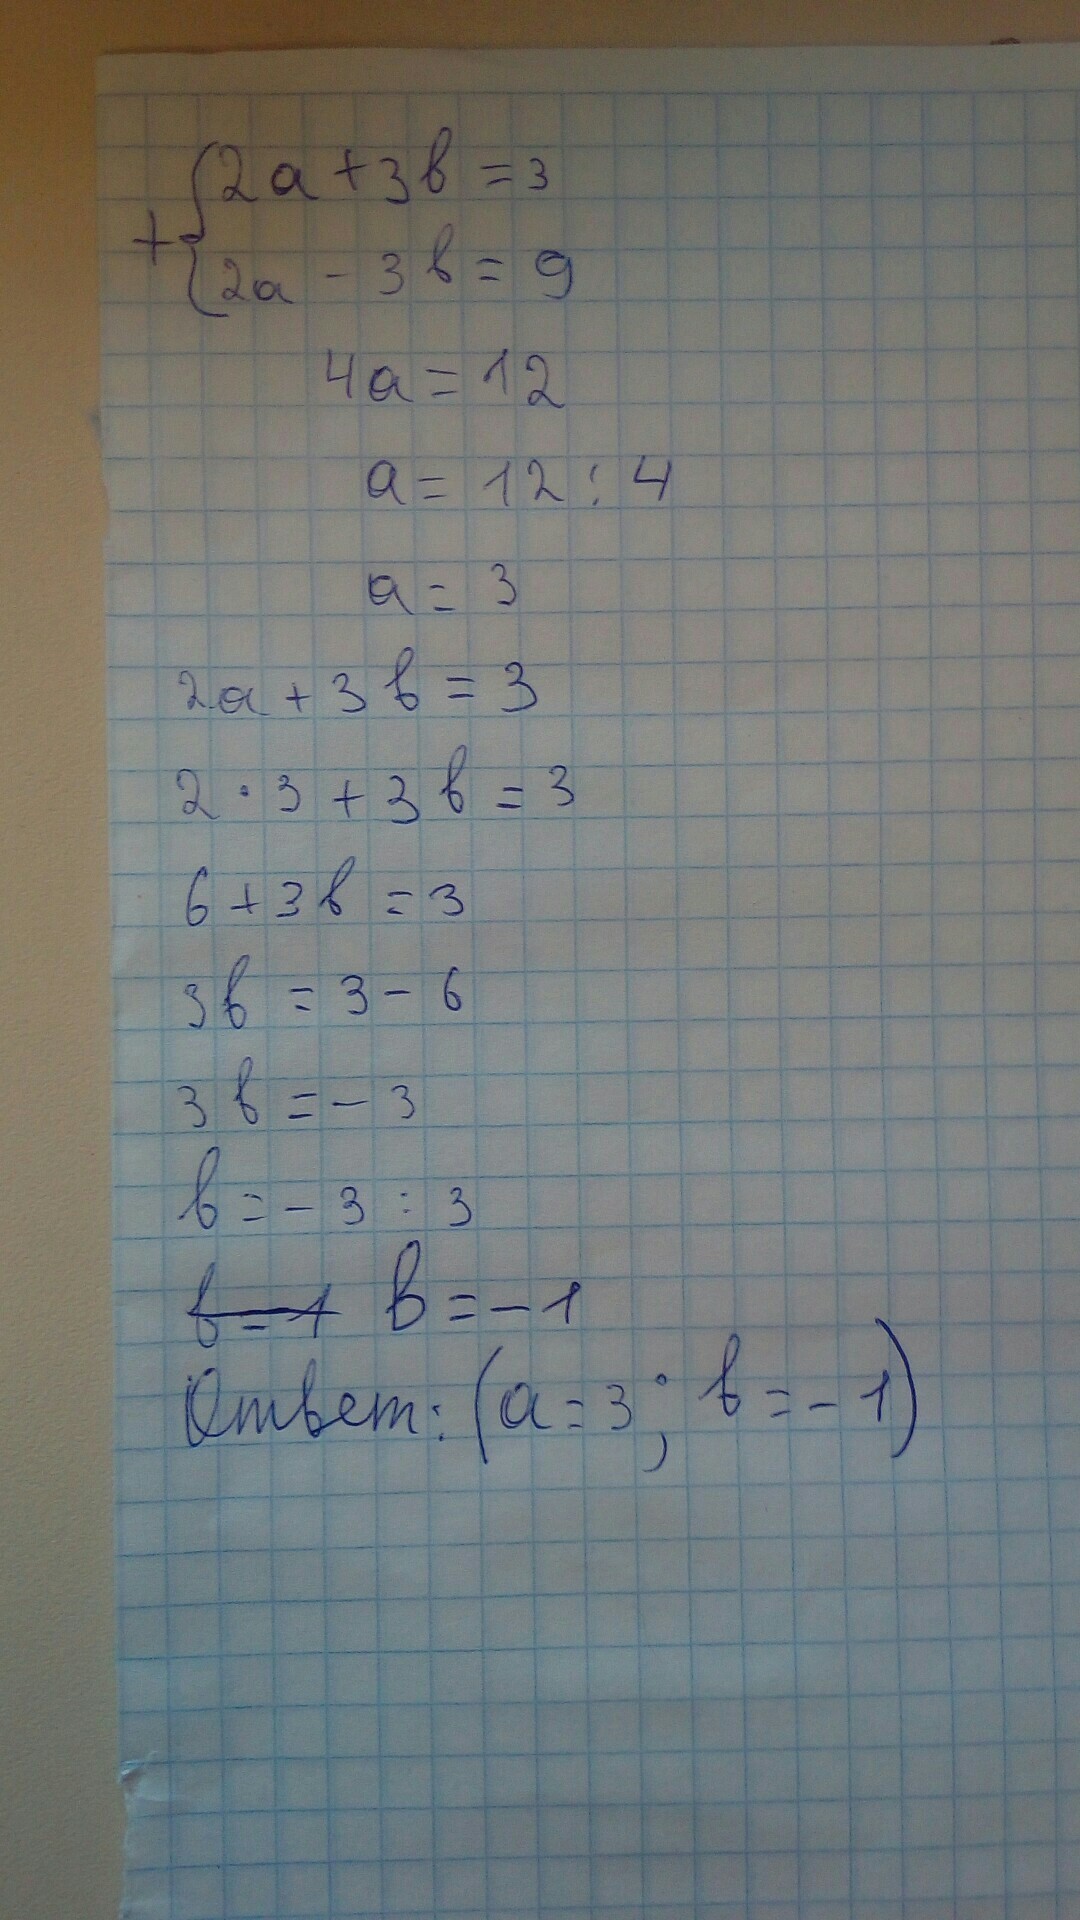 + { 2a + 3b = 3
2a - 3b = 9
4a = 12
a = 12 : 4
a = 3
2a + 3b = 3
2 · 3 + 3b = 3
6 + 3b = 3
3b = 3 - 6
3b = - 3
b = - 3 : 3
b = 1 b = - 1
Ответ: (a = 3; b = - 1)